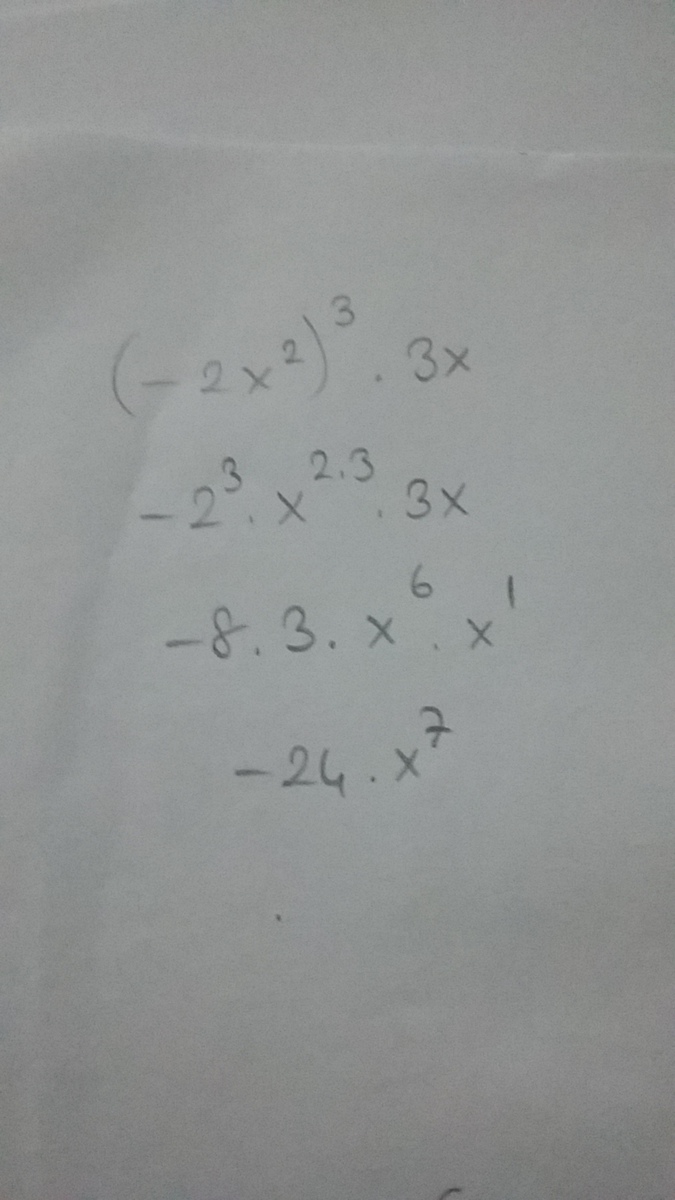 (-2x²)³ . 3x
-2³ . x²·³ . 3x
-8 . 3 . x⁶ . x¹
-24 . x⁷